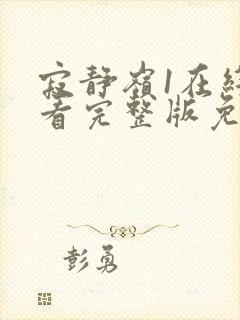 寂静嶺1在線
看完整版免
彭勇